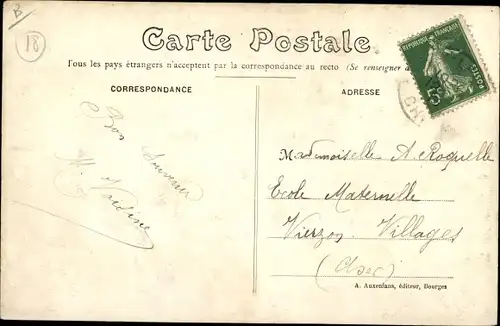 B
18
Carte Postale
Tous les pays étrangers n'acceptent par la correspondance au recto (Se renseigner à
REPUBLIQUE FRANÇAISE
POSTES
5
CORRESPONDANCE
ADRESSE
Bon Souvenir
Mademoiselle A. Roquelle
Ecole Maternelle
Vierzon Villages
(Cher)
A. Auxenfans, éditeur, Bourges